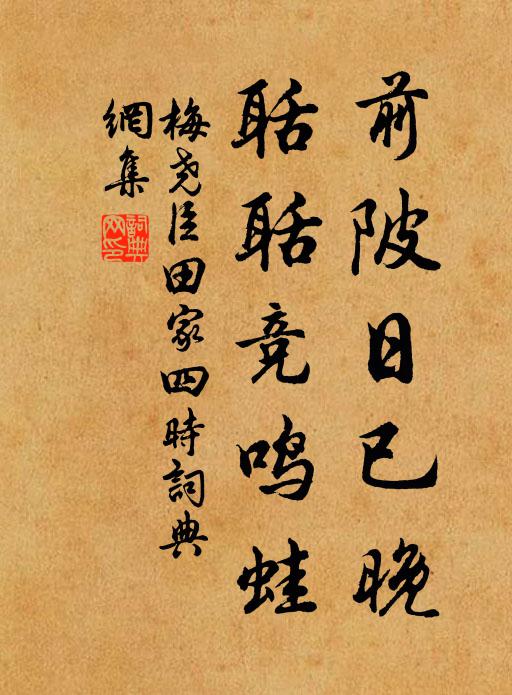 前陂日已晚
聒聒竞鸣蛙
梅尧臣田家四时詞典
網集
詞典
网印